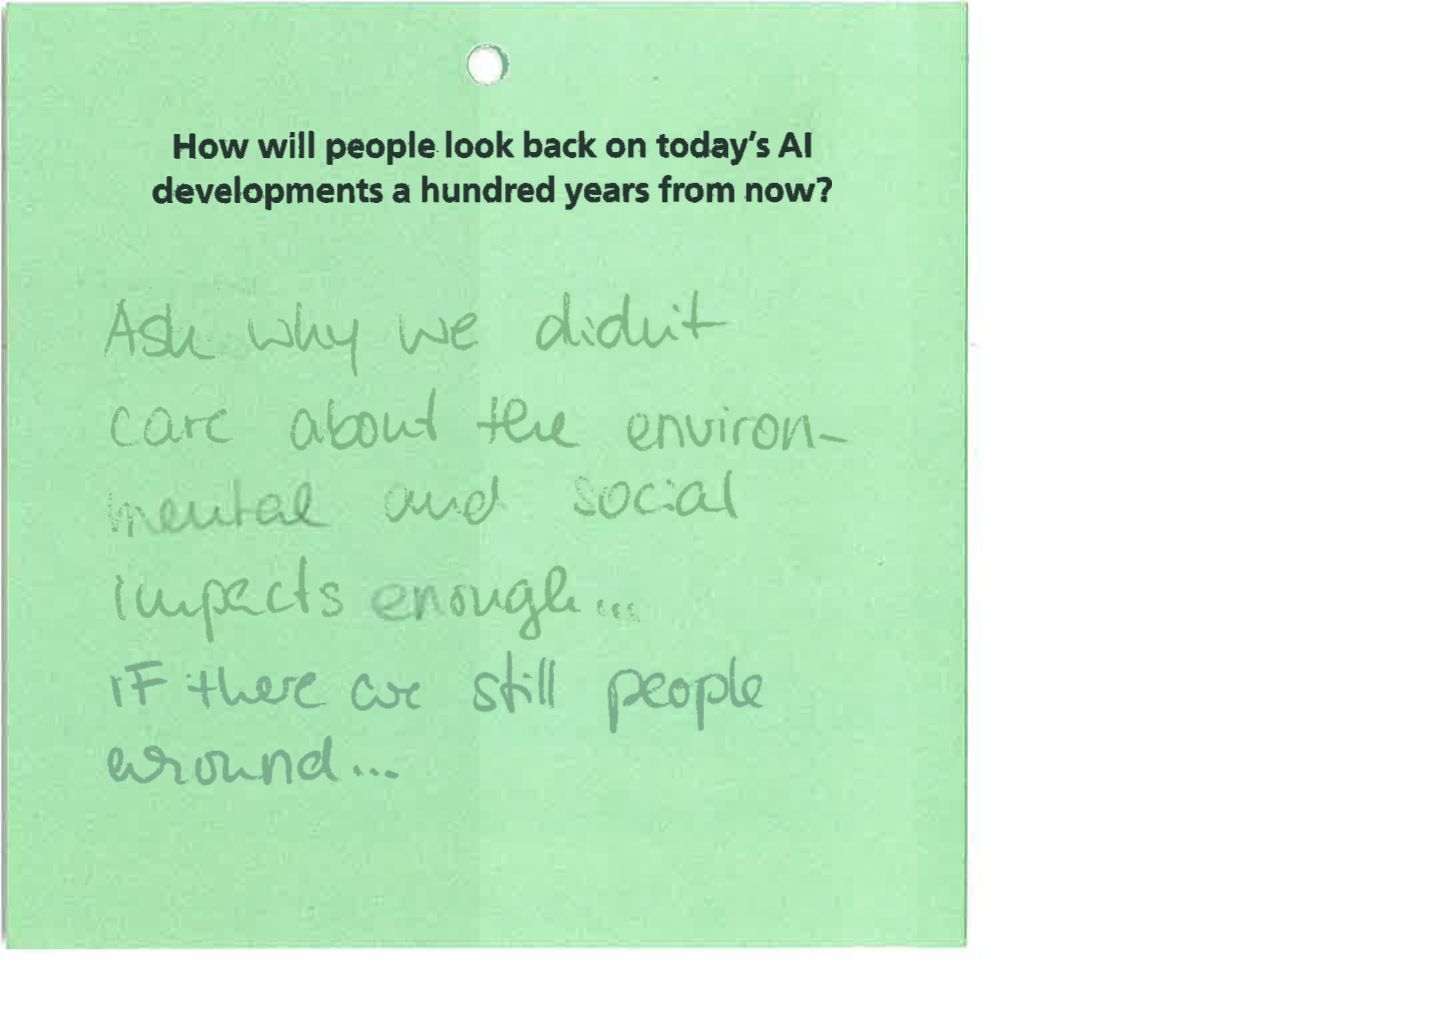 How will people look back on today's AI
developments a hundred years from now?
Ask why we didn't
care about the environ-
mental and social
impacts enough...
IF there are still people
around...